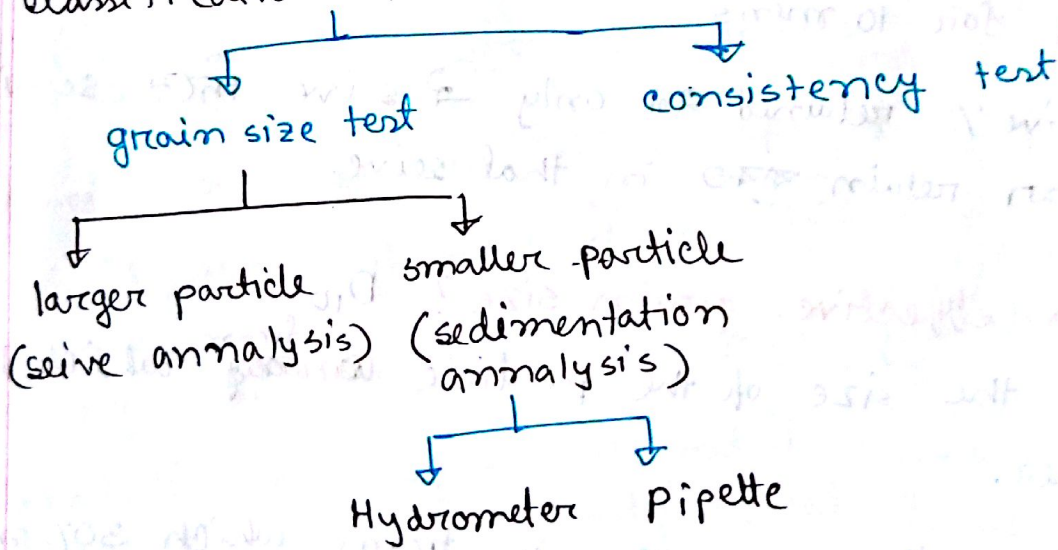 grain size test
consistency test
larger particle
(seive annalysis)
smaller particle
(sedimentation
annalysis)
Hydrometer
Pipette